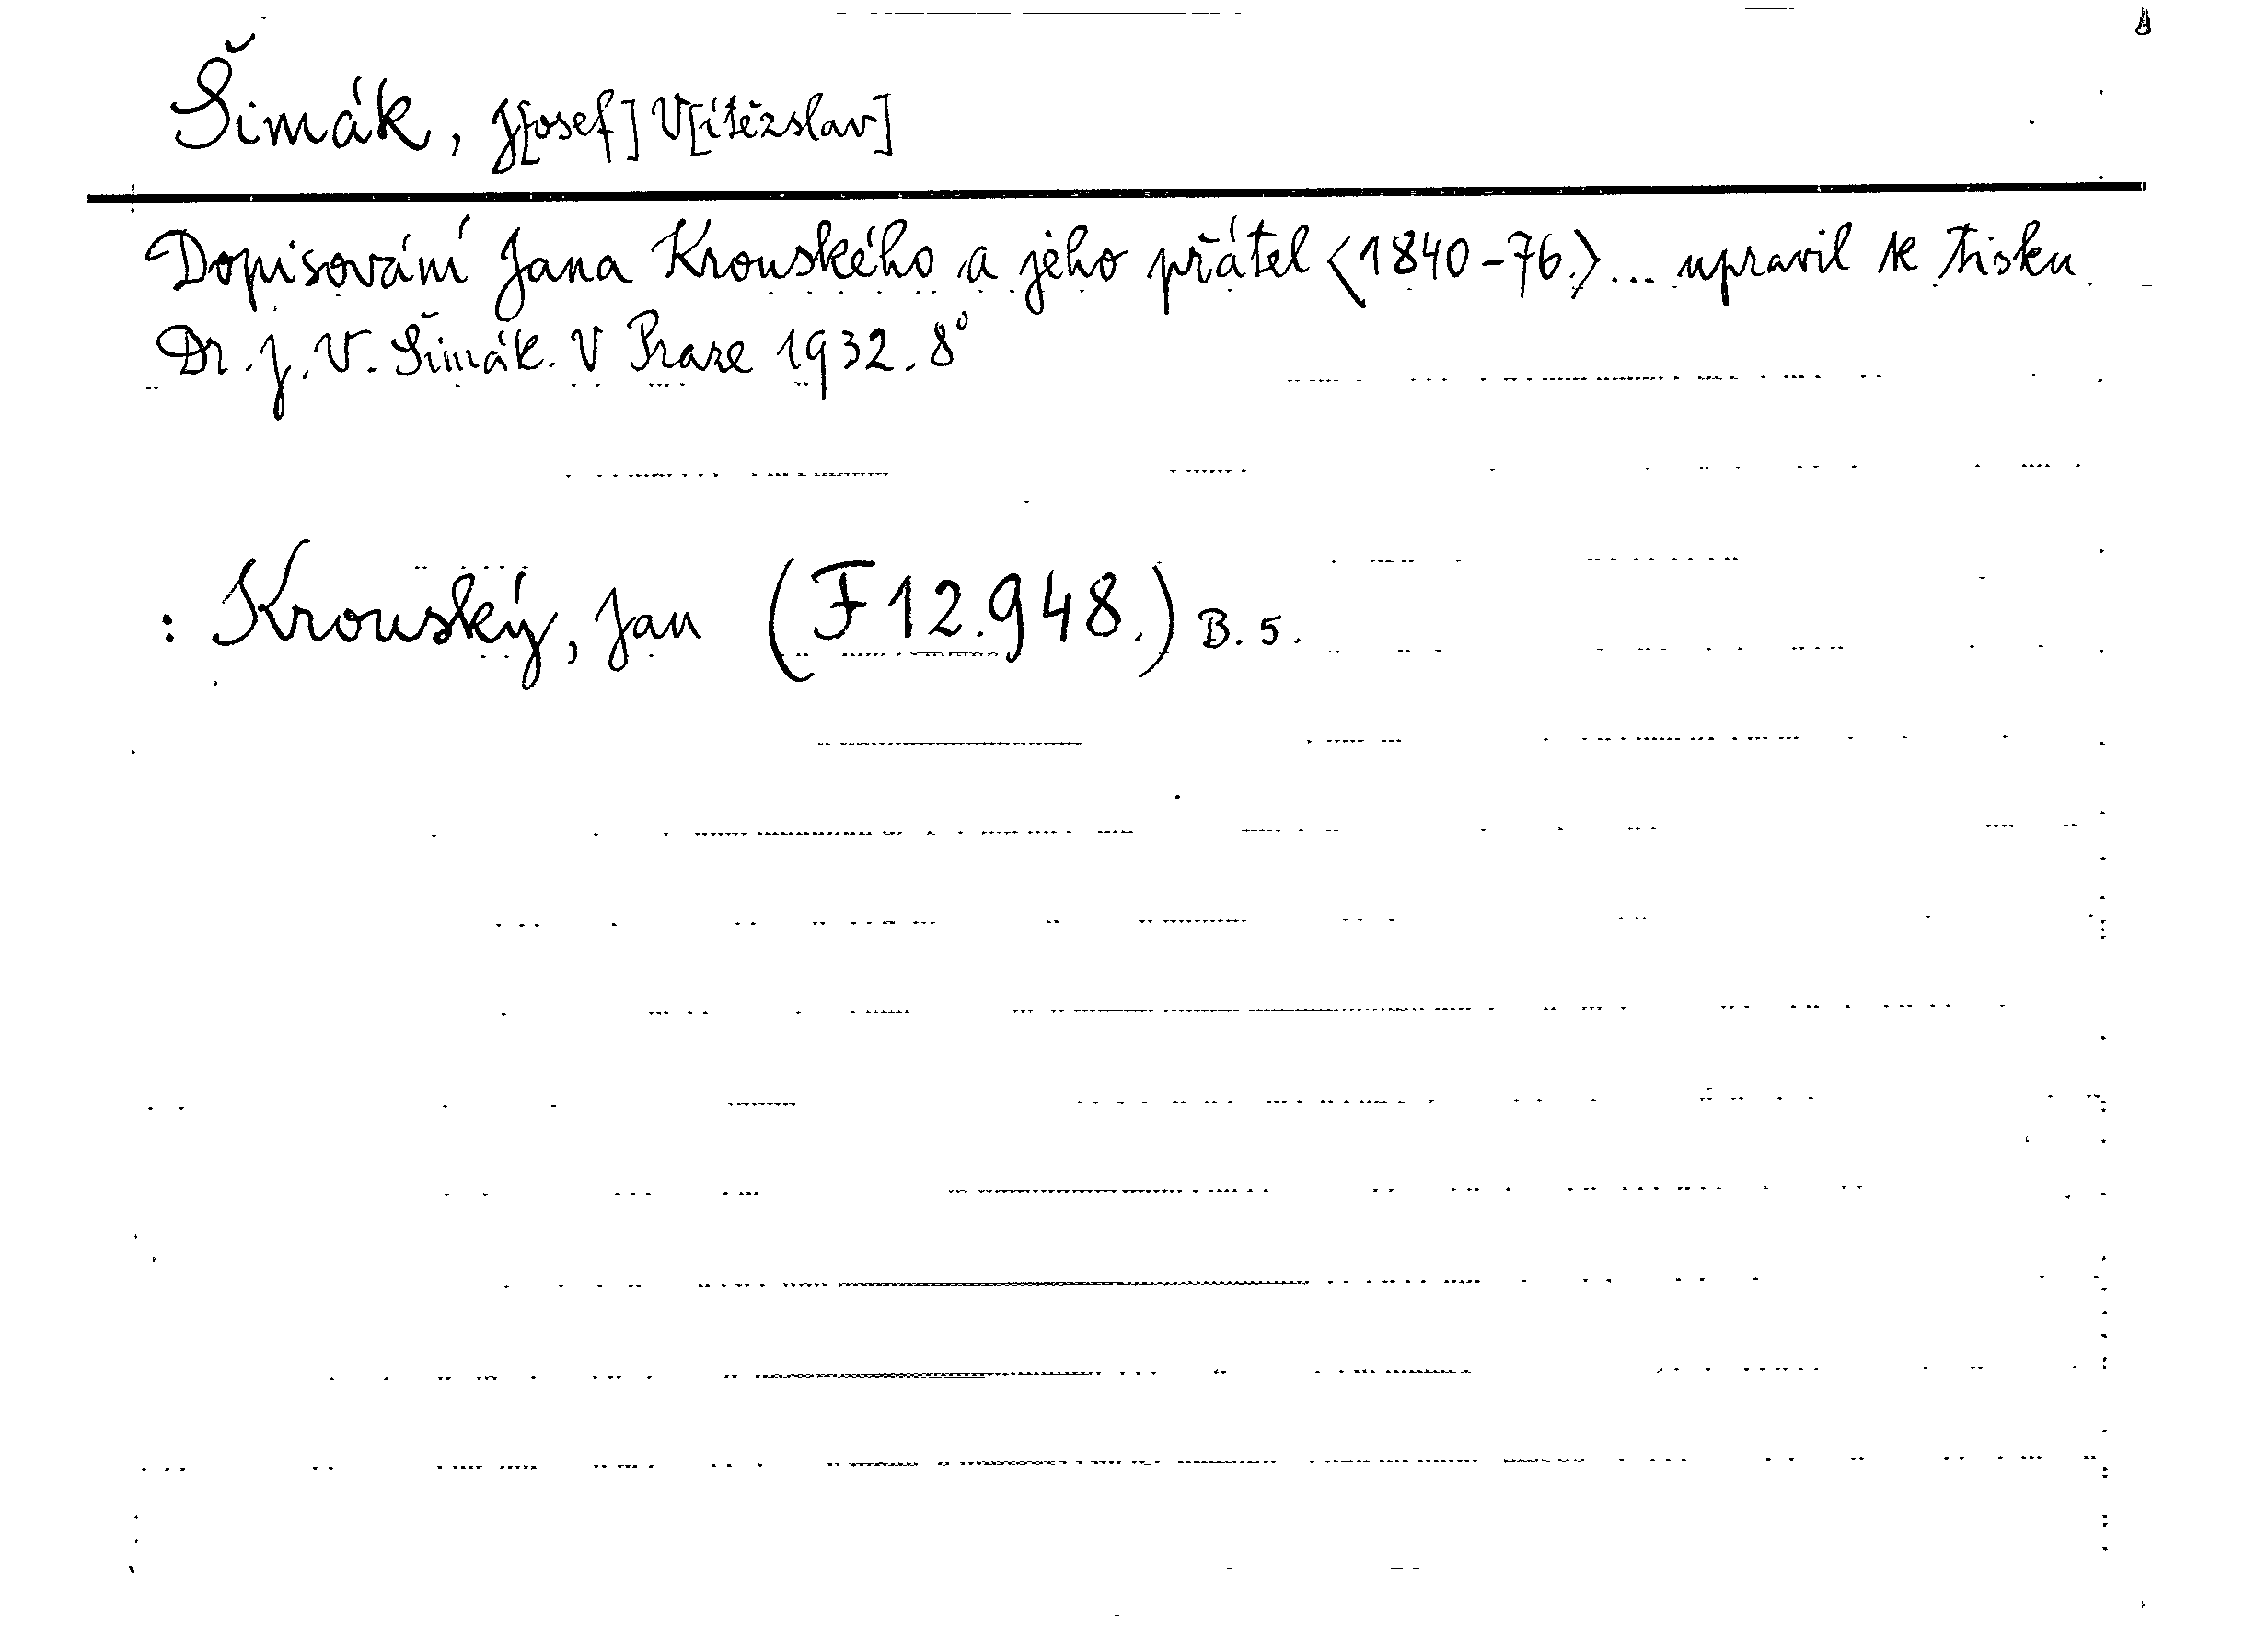 Šimák, J[osef] V[ítězslav]
Dopisování Jana Krouského a jeho přátel <1840-76.> ... upravil k tisku
Dr. J. V. Šimák. V Praze 1932. 8°
: Krouský, Jan (F 12.948.) B. 5.